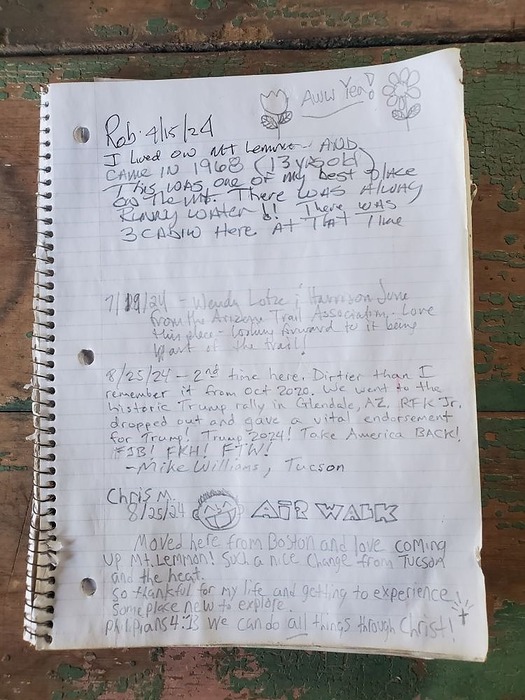 Aww Yea!
Rob. 4/15/24
I lived on Mt Lemmon. AND
CAME IN 1968 (13 yrs old)
This was one of my best place
on the Mt. There was Alway
Runny water!! There was
3 CABIN Here AT THAT Time
7/19/24 - Wendy Lotze & Harrison June
from the Arizona Trail Association. Love
this place - looking forward to it being
part of the trail!
8/25/24 - 2nd time here. Dirtier than I
remember it from Oct 2020. We went to the
historic Trump rally in Glendale, AZ. RFK Jr.
dropped out and gave a vital endorsement
for Trump! Trump 2024! Take America BACK!
FJB! FKH! FTW!
-Mike Williams, Tucson
Chris M.
8/25/24 AiR WALK
Moved here from Boston and love coming
up Mt. Lemmon! Such a nice change from Tucson
and the heat.
So thankful for my life and getting to experience
someplace new to explore.
Philipians 4:13 we can do all things through Christ!